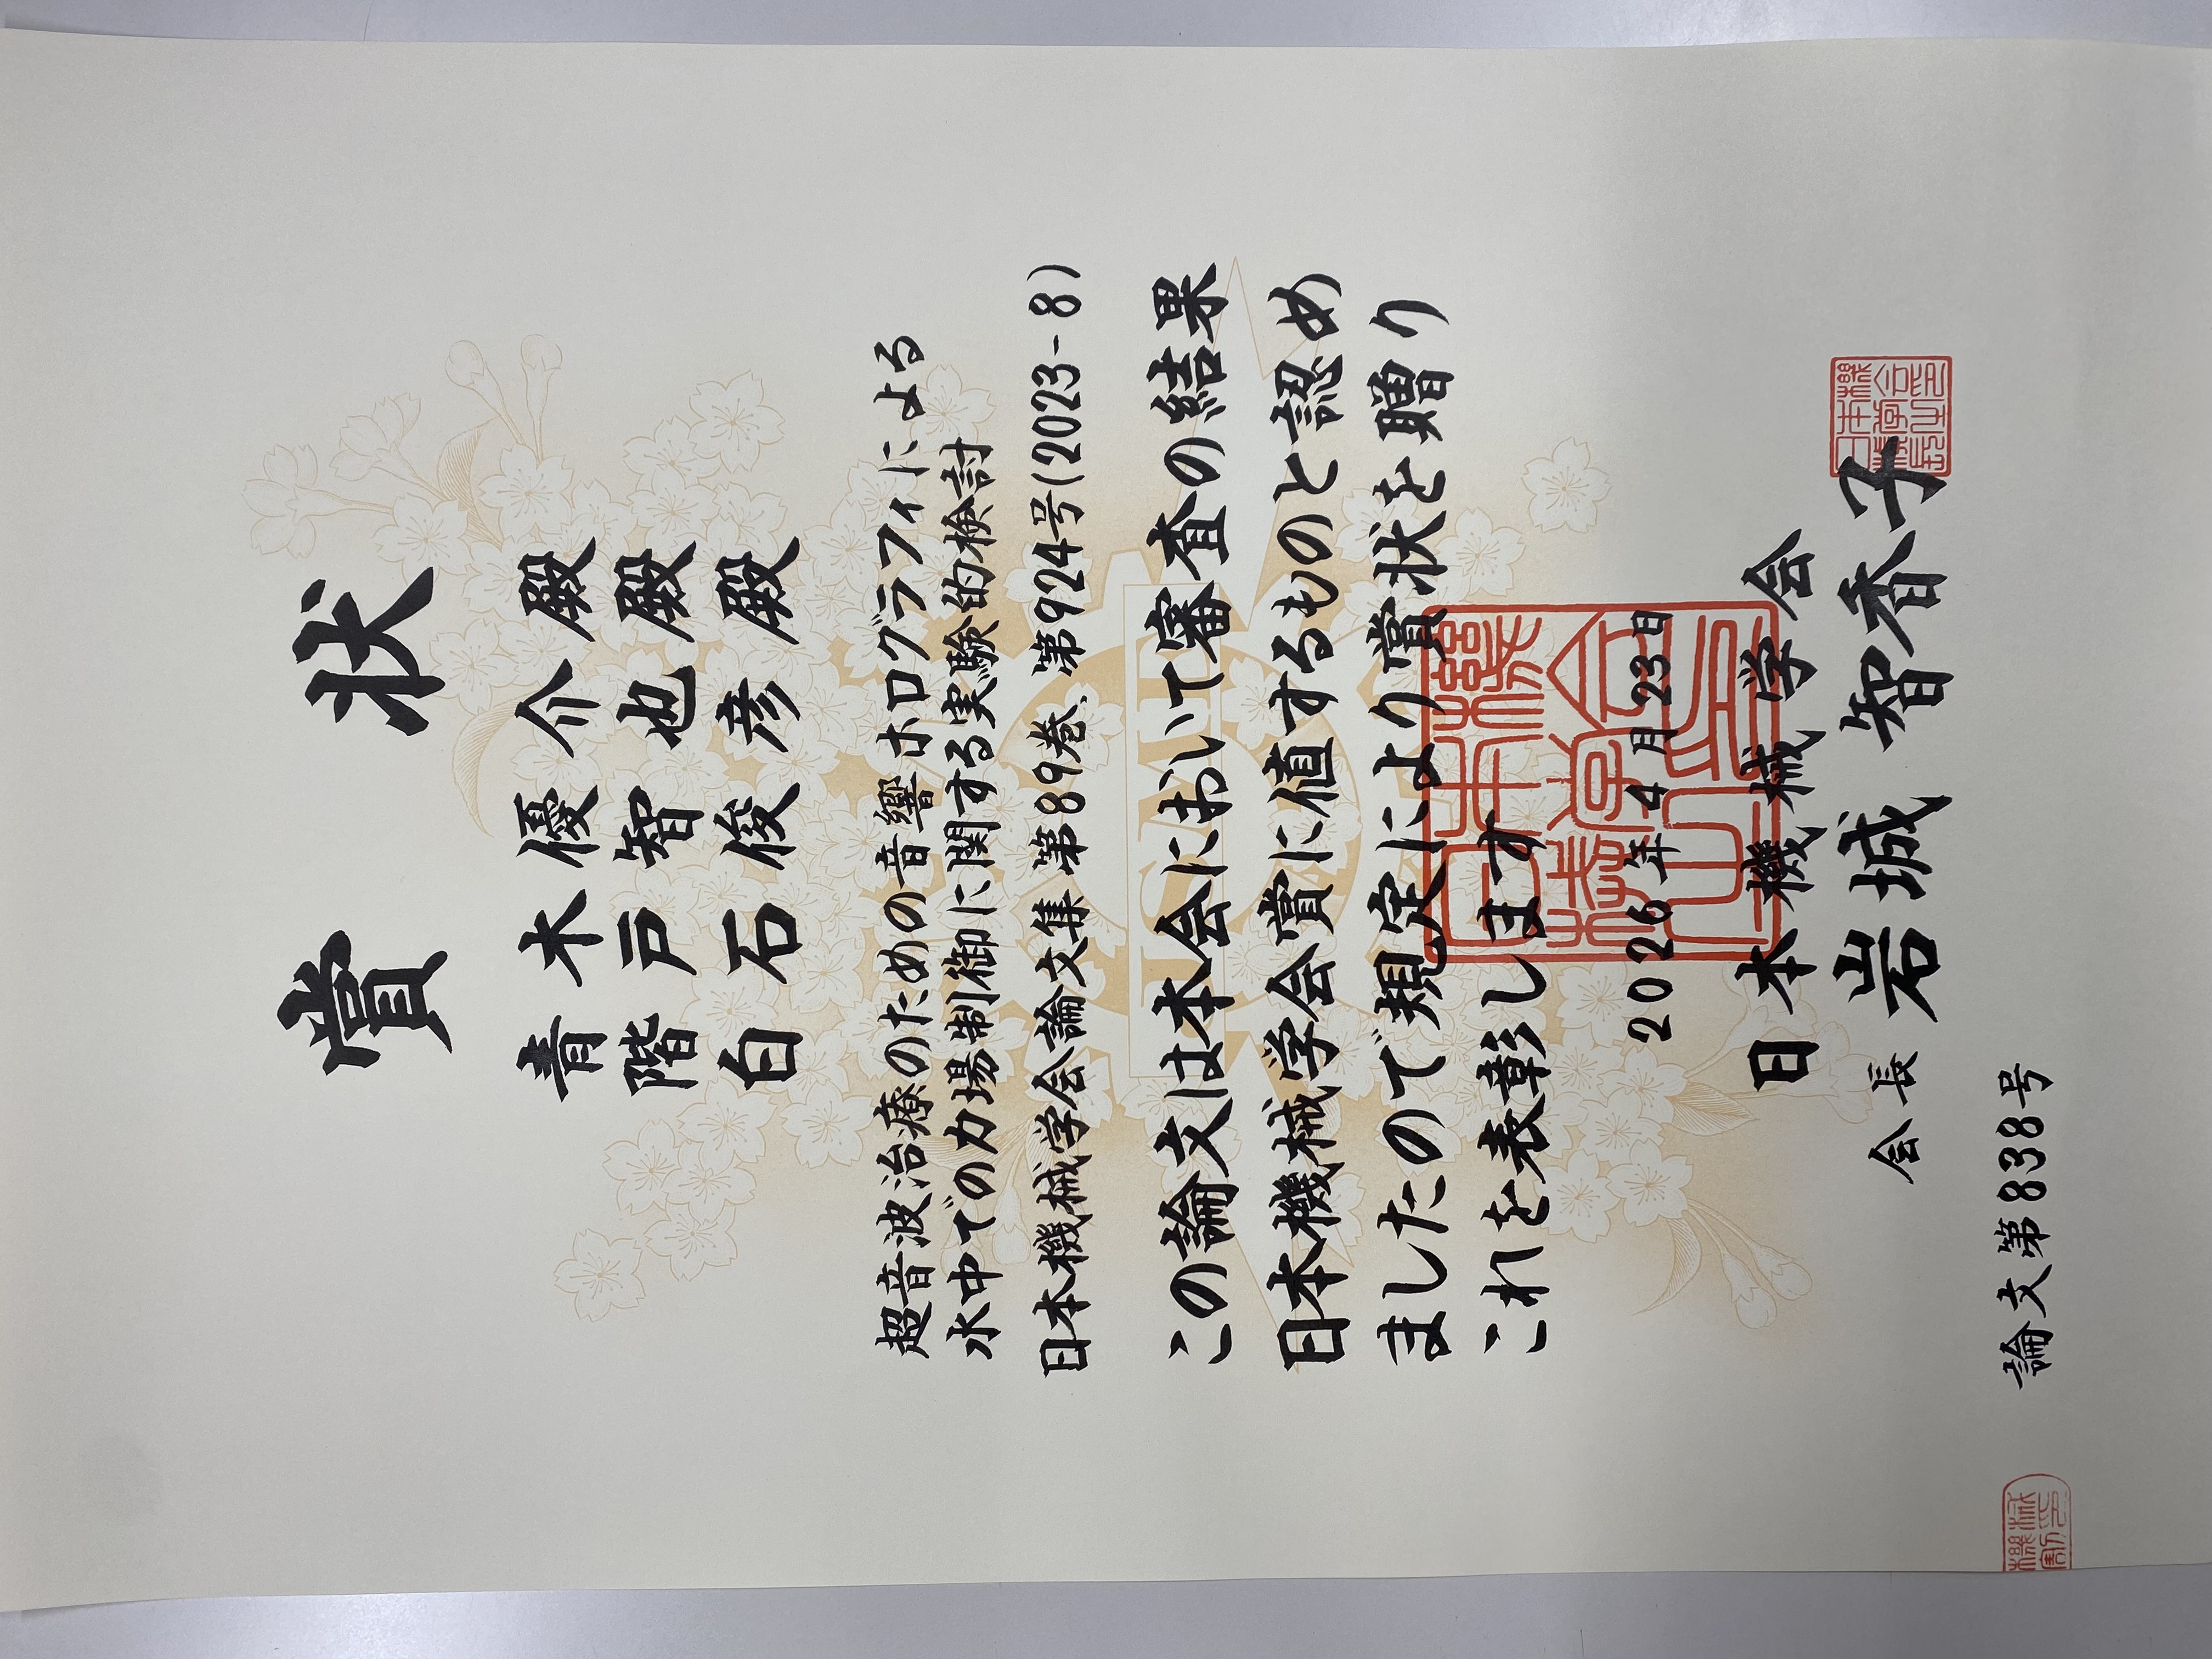 賞状
青木優介殿
階戸智也殿
白石俊彦殿
超音波治療のための音響ホログラフィによる
水中での力場制御に関する実験的検討
日本機械学会論文集 第89巻、第924号(2023-8)
この論文は本会において審査の結果
日本機械学会賞に値するものと認め
ましたので規定により賞状を贈り
これを表彰します
2026年4月23日
日本機械学会
会長 岩城智香子
論文第838号